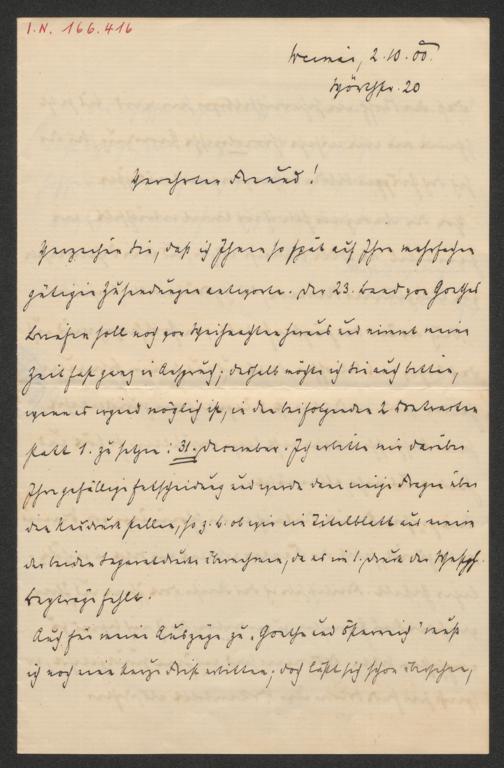 I.N. 166.416
Weimar, 2.10.00.
Wörthstr. 20
Verehrter Freund!
Verzeihen Sie, daß ich Ihnen so spät auf Ihre mehrfachen
gütigen Zusendungen antworte. Der 23. Band von Goethes
Briefen soll noch vor Weihnachten heraus und nimmt meine
Zeit fast ganz in Anspruch; deshalb möchte ich Sie auch bitten,
wenn es irgend möglich ist, in den beifolgenden 2 Contracten
statt 1. zu setzen: 31. December. Ich erbitte mir darüber
Ihre gefällige Entscheidung und werde dann einige Fragen über
den Neudruck stellen, so z. b. ob wir ein Titelblatt aus einem
der beiden Separatdrucke übernehmen, da es im 1. Druck der
Beyträge fehlt.
Auch für meine Auszüge zu „Goethe und Österreich" muß
ich noch eine kurze Frist erbitten; doch läßt sich schon übersehen,